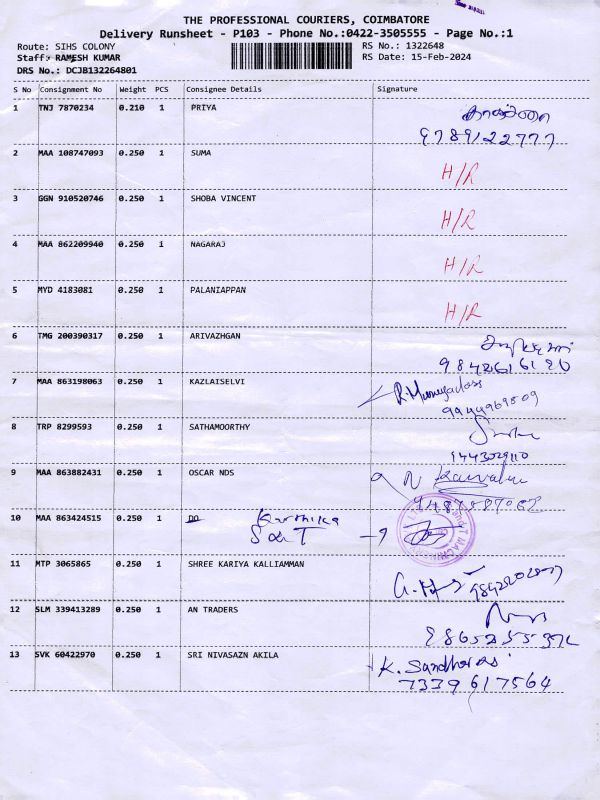 THE PROFESSIONAL COURIERS, COIMBATORE
Delivery Runsheet - P103 - Phone No.:0422-3505555 - Page No.:1
Route: SIHS COLONY
RS No.: 1322648
Staff: RAMESH KUMAR
RS Date: 15-Feb-2024
DRS No.: DCJB132264801
S No Consignment No Weight PCS Consignee Details Signature
1 TNJ 7870234 0.210 1 PRIYA
9789122777
2 MAA 108747093 0.250 1 SUMA
H/R
3 GGN 910520746 0.250 1 SHOBA VINCENT
H/R
4 MAA 862209940 0.250 1 NAGARAJ
H/R
5 MYD 4183081 0.250 1 PALANIAPPAN
H/R
6 TMG 200390317 0.250 1 ARIVAZHGAN
7 MAA 863198063 0.250 1 KAZLAISELVI
8 TRP 8299593 0.250 1 SATHAMOORTHY
9443029110
9 MAA 863882431 0.250 1 OSCAR NDS
10 MAA 863424515 0.250 1 DO Karthika
11 MTP 3065865 0.250 1 SHREE KARIYA KALLIAMMAN
12 SLM 339413289 0.250 1 AN TRADERS
13 SVK 60422970 0.250 1 SRI NIVASAZN AKILA
7339617564